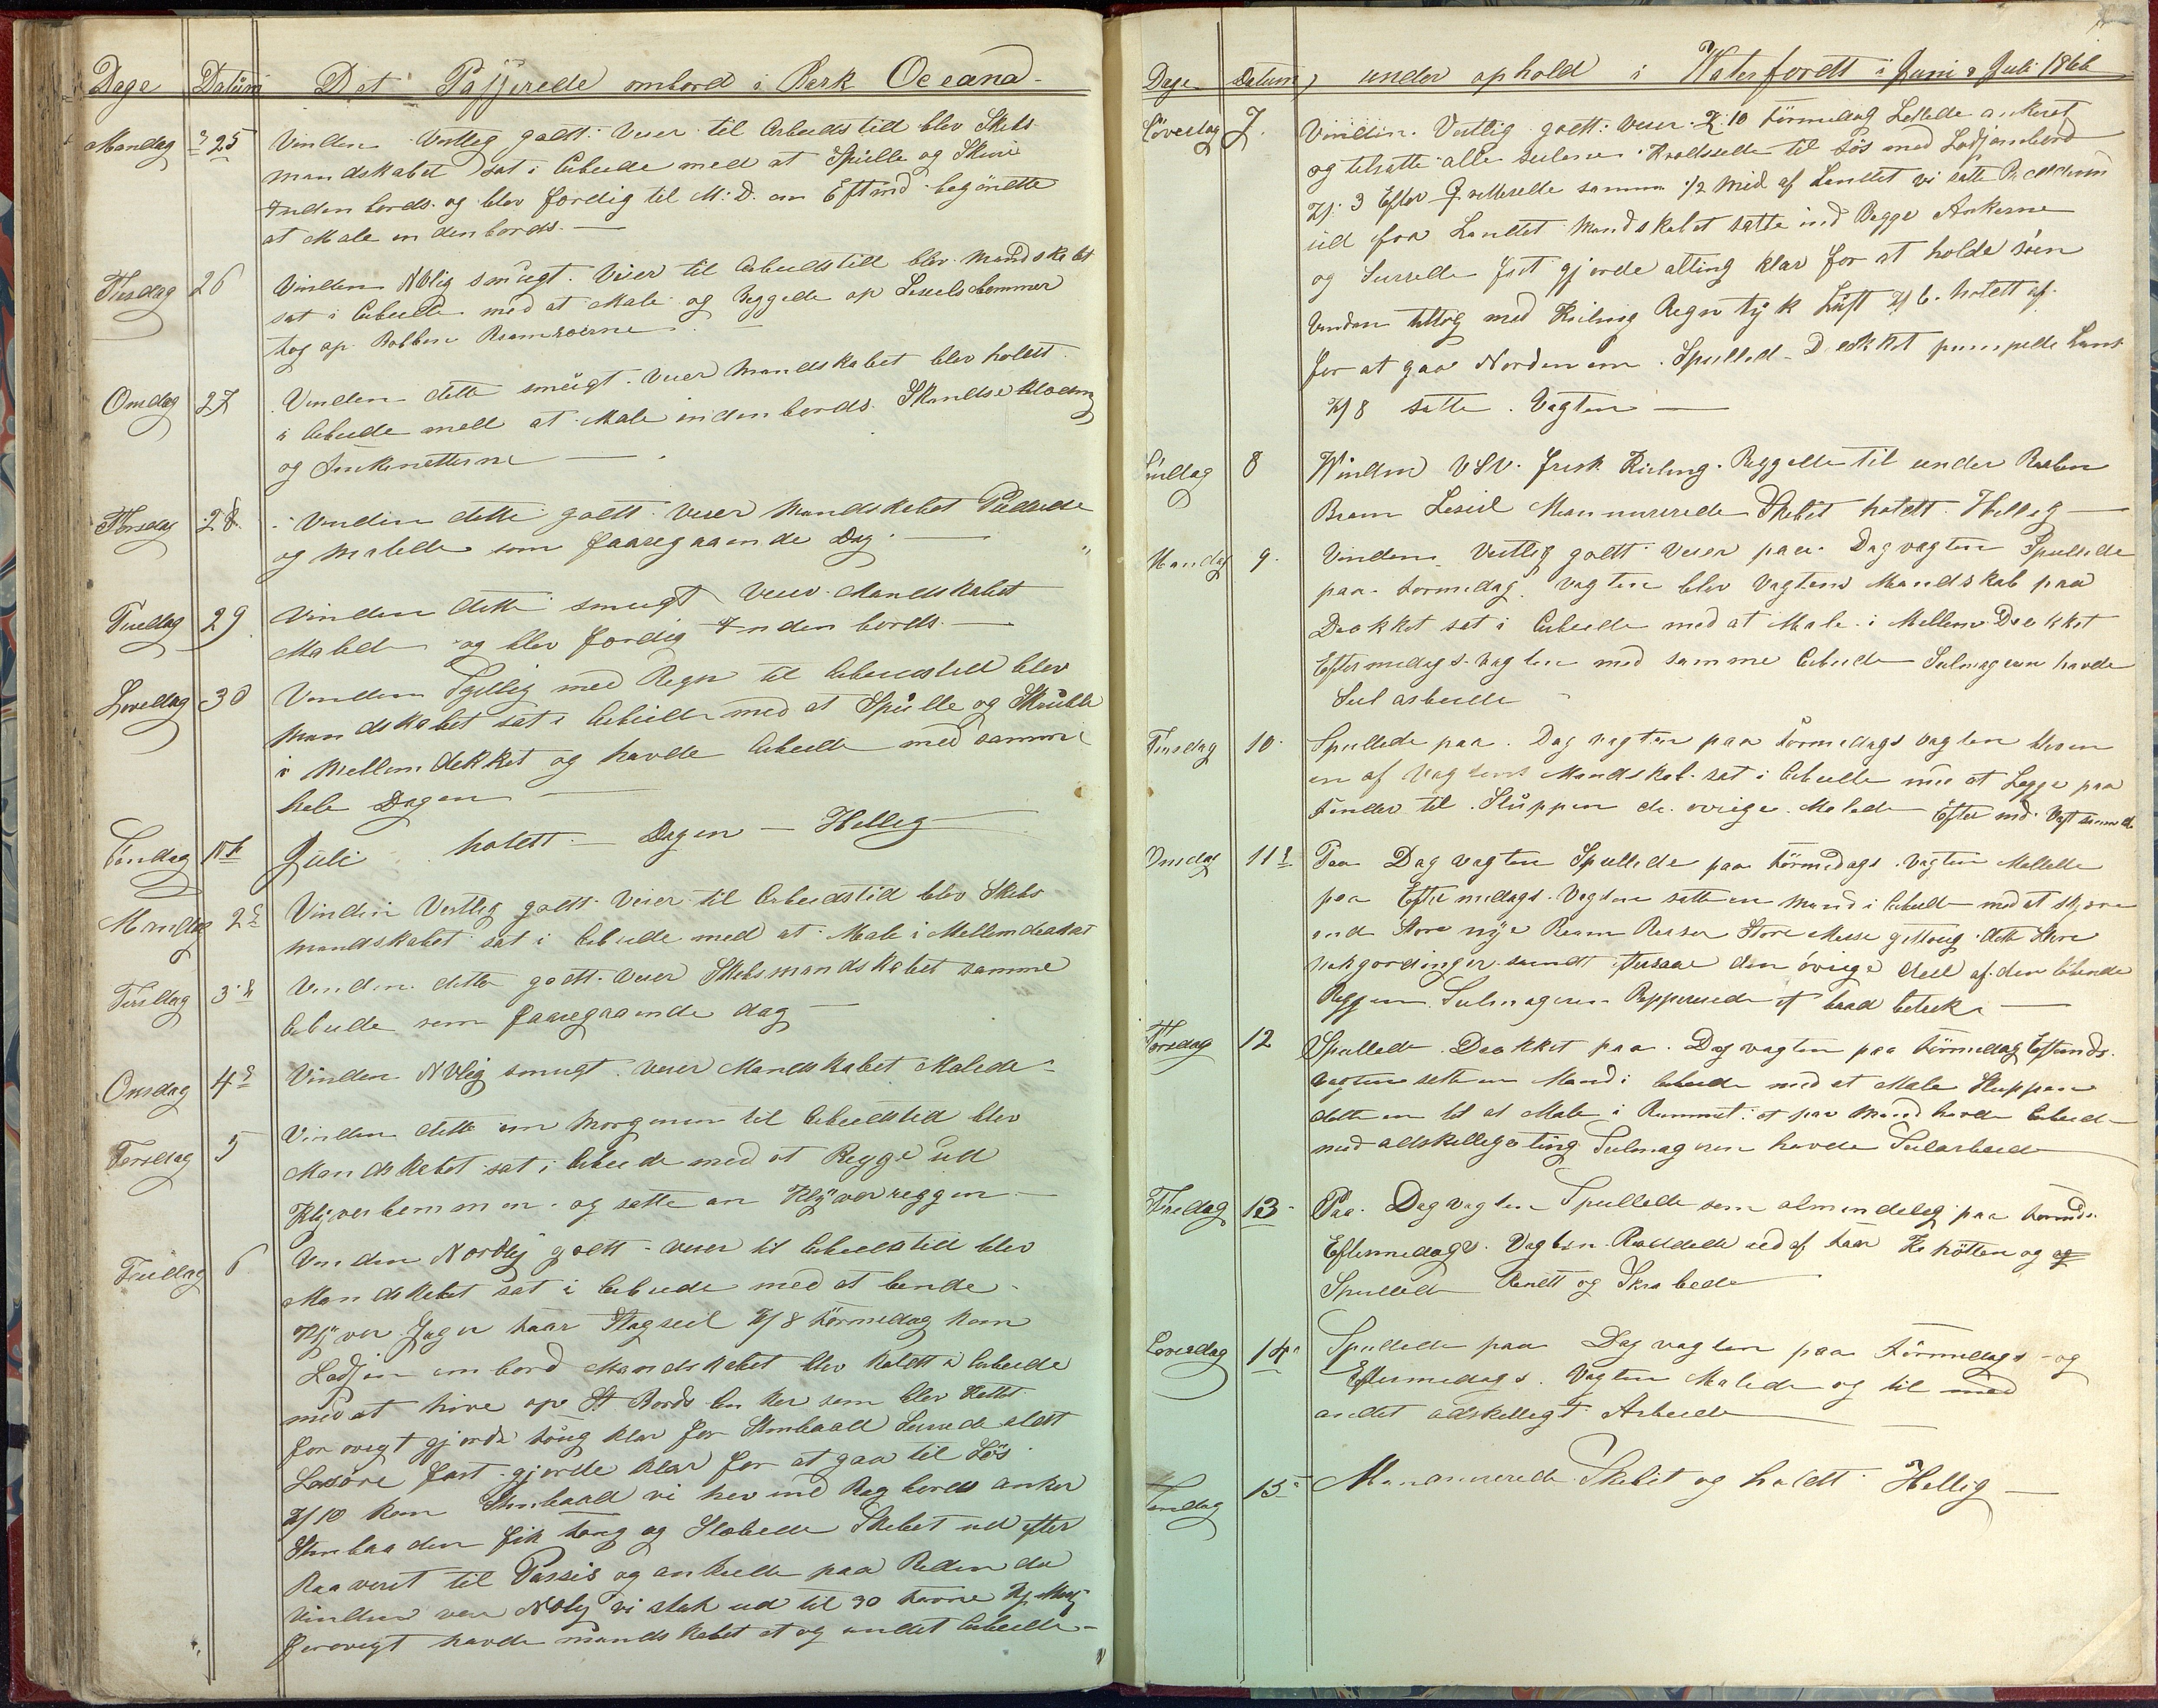 Dage Datum Det Passerede ombord i Bark Oceana
Mandag 25 Vinden Vestlig godt Veier til Arbeidstid blev Skibs
mandskabet sat i Arbeide med at Spulle og Skure
Inden bords og blev færdig til M: D. om Eftmd begöndte
at Male indenbords.
Tirsdag 26 Vinden NVlig smugt Veier til Arbeidstid blev Mandskabet
sat i Arbeide med at Male og Reggede op Leseilsbommer
tog op Robben Bramraaerne
Onsdag 27 Vinden dette smugt Veier Mandskabet blev holdt
i Arbeide med at Male indenbords Skandseklædning
og Finkenetterne
Torsdag 28 Vinden dette godt Veier Mandskabet
og Malede som foaregaaende Dag.
Fredag 29 Vinden dette smugt Veier Mandskabet
Malede og blev fordig Inden bords.
Löverdag 30 Vinden med Regn til Arbeidstid blev
Mandskabet sat i Arbeide med at Spulle og Skrubbe
i Mellem dekket og havde Arbeide med samme
hele Dagen
Söndag 1st Juli holdt Dagen — Hellig
Mandag 2 Vinden Vestlig godt Veier til Arbeidstid blev Skibs
mandskabet sat i Arbeide med at Male i Mellemdækket
Tirsdag 3 Vinden dette godt Veier Skibsmandskabet samme
Arbeide som foaregaaende dag
Onsdag 4 Vinden NVlig smugt Veier Mandskabet Malede
Torsdag 5 Vinden dette om Morgenen til Arbeidstid blev
Mandskabet sat i Arbeide med at Regge ud
Klyverbommen og satte an Klyverreggen
Fredag 6 Vinden Nordlig godt Veier til Arbeidstid blev
Mandskabet sat i Arbeide med at bende
Klyver Jager Stagseil Kl 8 Förmedag kom
Lodsen ombord Mandskabet blev holdt i Arbeide
med at hive op St Bords Anker som blev Kattet
for övrigt gjorde toug klar for Stmbaad Surrede aldt
Lasöre fast gjorde klar for at gaa til Sös
Kl 10 kom Stmbaad vi hev ind Bagbords anker
Stmbaaden fik toug og Slæbede Skibet ud efter
til Passis og ankrede paa Reden da
Vinden var NVlig vi stak ud til 30 favne
forövrigt havde mandskabet et og andet Arbeide
Dage Datum, under ophold i Waterfordt i Juni & Juli 1866
Löverdag 7. Vinden Vestlig godt Veier Kl 10 Förmedag Lettede ankeret
og tilsatte alle seilene Krodssede til Sös med Lodsombord
Kl: 3 Efter Qvitterede samme 1/2 Mid af Landtet vi satte
ud fra Landtet Mandskabet satte ind Begge Ankerne
og Surrede fast gjorde alting klar for at holde söen
Vinden tiltog med Kuling Regn tyk Luft Kl 6 holdt af
for at gaae Norden om. Spulled Dækket pumpede Læns
Kl 8 satte Vagten
Söndag 8 Vinden VSV. frisk Kuling. Reggede til under
Bram Leseil Mannuverede Skibet holdt Hellig
Mandag 9. Vinden Vestlig godt Veier paa Dagvagten Spullede
paa Formedag vagten blev Vagtens Mandskab paa
Dækket sat i Arbeide med at Male i Mellem Dekket
Eftermedags Vagten med samme Arbeide Seilmageren havde
Seil arbeide
Tirsdag 10. Spullede paa Dagvagten paa Förmedags vagten blev
en af Vagtens Mandskab sat i Arbeide med at Legge paa
Finder til Sluppen de övrige Malede Efter md Vagt samme
Onsdag 11 Paa Dagvagten Spullede paa Förmedags Vagten Malede
paa Eftermedags Vagten satte en Mand i Arbeide med at skjære
ind Store nye Bram Store Merse dette Store
Nokgordinger samt eftersaae den övrige deel af den löbende
Reggen Seilmageren Repperede et
Torsdag 12 Spullede Dækket paa Dagvagten paa Förmedag Eftmds.
Vagten satte en Mand i Arbeide med at Male Sluppen
dette en til at Male i Rummet: et par Mand havde Arbeide
med adskellige ting Seilmageren havde Seilarbeide
Fredag 13 Paa Dagvagten Spullede som almindelig paa Formds.
Eftermedags Vagten ud af Kahötten og og
Spullede Rendt og Skrabede
Löverdag 14 Spullede paa Dagvagten paa Förmedags og
Eftermedags Vagten Malede og til med
andet adskelligt Arbeide
Söndag 15 Mannuverede Skibet og holdt Hellig